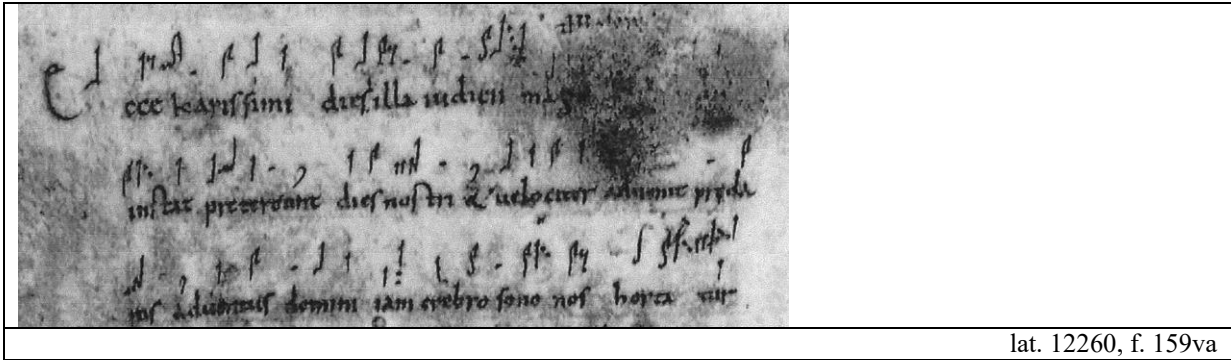 Ecce karissimi dies illa iudicii mag
instat pretereunt dies nostri & velociter advenit pręcla
rus adventus domini iam crebro sono nos horta tur
lat. 12260, f. 159va